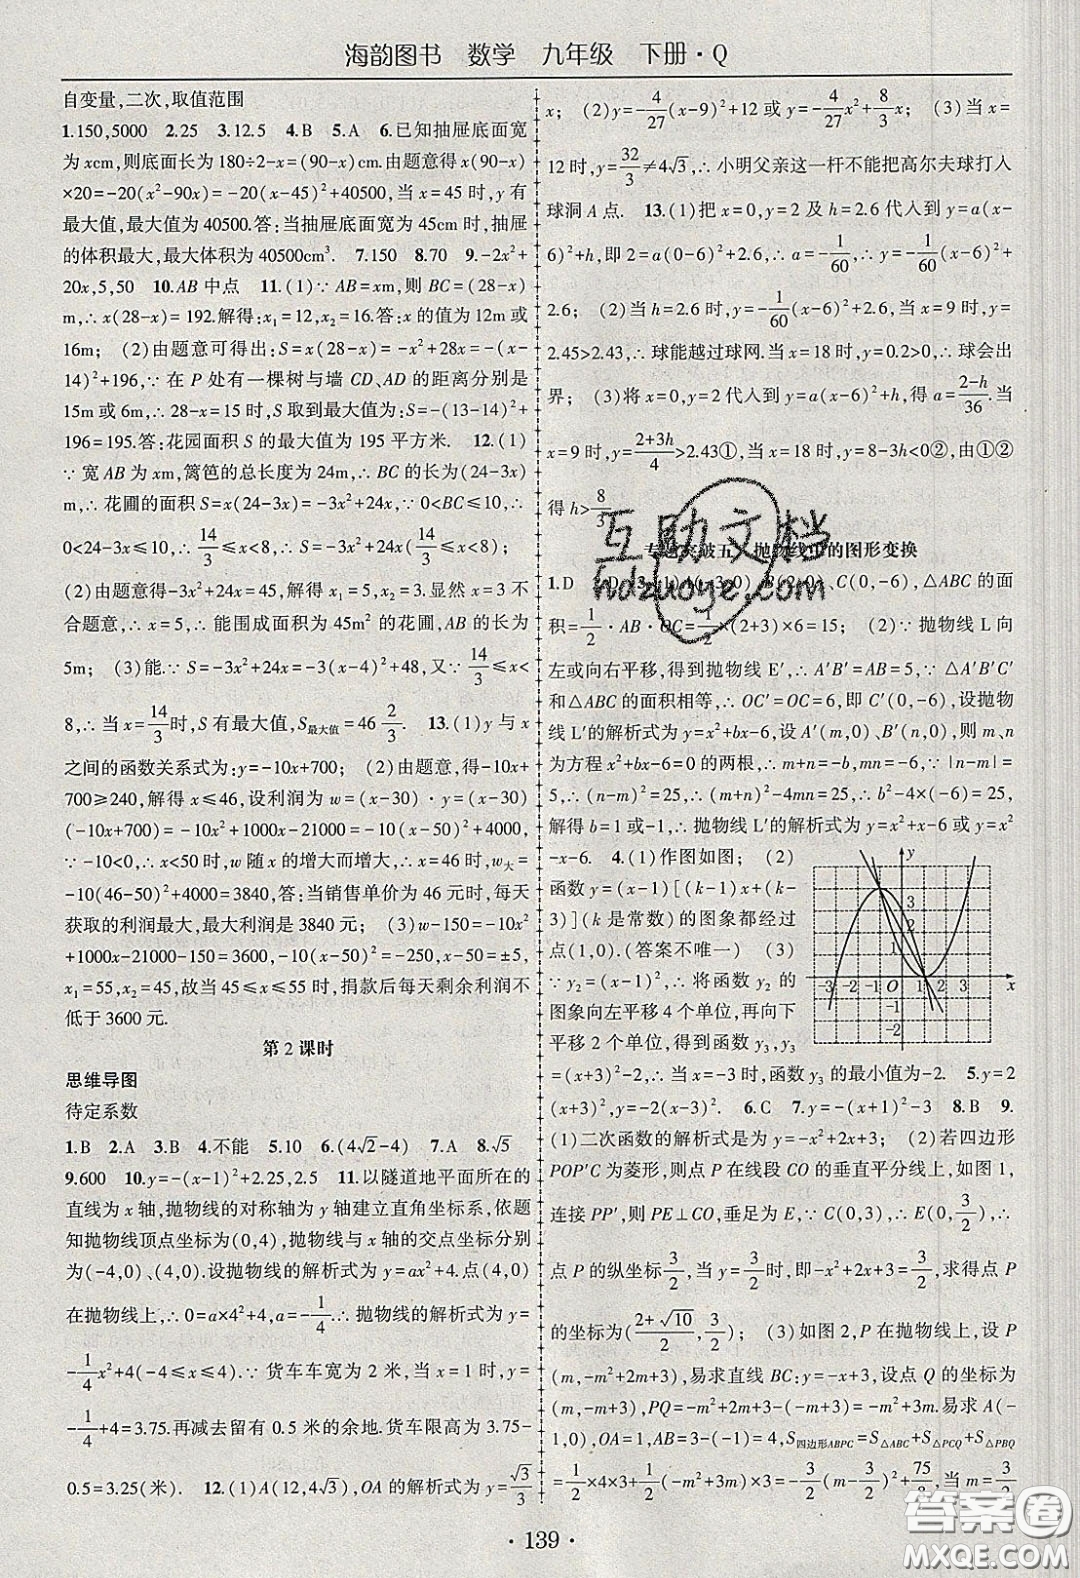 海韵图书 数学 九年级 下册·Q
自变量,二次,取值范围
1.150,5000 2.25 3.12.5 4.B 5.A 6.已知抽屉底面宽
为xcm,则底面长为180÷2-x=(90-x)cm.由题意得x(90-x)
×20=-20(x²-90x)=-20(x-45)²+40500,当x=45时,y有
最大值,最大值为40500.答:当抽屉底面宽为45cm时,抽屉
的体积最大,最大体积为40500cm³. 7.150 8.70 9.-2x²+
20x,5,50 10.AB中点 11.(1)∵AB=xm,则BC=(28-x)
m,∴x(28-x)=192.解得:x₁=12,x₂=16.答:x的值为12m或
16m; (2)由题意可得出:S=x(28-x)=-x²+28x=-(x-
14)²+196,∵在P处有一棵树与墙CD、AD的距离分别是
15m或6m,∴28-x=15时,S取到最大值为:S=-(13-14)²+
196=195.答:花园面积S的最大值为195平方米. 12.(1)
∵宽AB为xm,篱笆的总长度为24m,∴BC的长为(24-3x)
m,∴花圃的面积S=x(24-3x)=-3x²+24x,∵0<BC≤10,∴
0<24-3x≤10,∴14/3≤x<8,∴S=-3x²+24x(14/3≤x<8);
(2)由题意得-3x²+24x=45,解得x₁=5,x₂=3.当x=3时,不
合题意,∴x=5,∴能围成面积为45m²的花圃,AB的长为
5m; (3)能.∵S=-3x²+24x=-3(x-4)²+48,又∵14/3≤x<
8,∴当x=14/3时,S有最大值,S最大值=46 2/3. 13.(1)y与x
之间的函数关系式为:y=-10x+700; (2)由题意,得-10x+
700≥240,解得x≤46,设利润为w=(x-30)·y=(x-30)
(-10x+700)=-10x²+1000x-21000=-10(x-50)²+4000,
∵-10<0,∴x<50时,w随x的增大而增大,∴x=46时,w大=
-10(46-50)²+4000=3840,答:当销售单价为46元时,每天
获取的利润最大,最大利润是3840元; (3)w-150=-10x²
+1000x-21000-150=3600,-10(x-50)²=-250,x-50=±5,
x₁=55,x₂=45,故当45≤x≤55时,捐款后每天剩余利润不
低于3600元.
第2课时
思维导图
待定系数
1.B 2.A 3.B 4.不能 5.10 6.(4√2-4) 7.A 8.√5
9.600 10.y=-(x-1)²+2.25,2.5 11.以隧道地平面所在的
直线为x轴,抛物线的对称轴为y轴建立直角坐标系,依题
知抛物线顶点坐标为(0,4),抛物线与x轴的交点坐标分别
为(-4,0)、(4,0).设抛物线的解析式为y=ax²+4.点(4,0)
在抛物线上,∴0=a×4²+4,a=-1/4.∴抛物线的解析式为y=
-1/4x²+4(-4≤x≤4).∵货车车宽为2米,当x=1时,y=
-1/4+4=3.75.再减去留有0.5米的余地.货车限高为3.75-
0.5=3.25(米). 12.(1)A(12,4√3),OA的解析式为y=√3/3
x; (2)y=-4/27(x-9)²+12或y=-4/27x²+8/3x; (3)当x=
12时,y=32/3≠4√3,∴小明父亲这一杆不能把高尔夫球打入
球洞A点. 13.(1)把x=0,y=2及h=2.6代入到y=a(x-
6)²+h,即2=a(0-6)²+2.6,∴a=-1/60,∴y=-1/60(x-6)²+
2.6; (2)当h=2.6时,y=-1/60(x-6)²+2.6,当x=9时,y=
2.45>2.43,∴球能越过球网.当x=18时,y=0.2>0,∴球会出
界; (3)将x=0,y=2代入到y=a(x-6)²+h,得a=(2-h)/36.当
x=9时,(2+3h)/4>2.43①,当x=18时,y=8-3h<0②,由①②
得h>8/3.
专题突破五 抛物线中的图形变换
1.D B(2,0)、C(0,-6),△ABC的面
积=1/2·AB·OC=1/2×(2+3)×6=15; (2)∵抛物线L向
左或向右平移,得到抛物线E′,∴A′B′=AB=5,∵△A′B′C′
和△ABC的面积相等,∴OC′=OC=6,即C′(0,-6),设抛物
线L′的解析式为y=x²+bx-6,设A′(m,0)、B′(n,0),则m、n
为方程x²+bx-6=0的两根,∴m+n=-b,mn=-6,∵|n-m|=
5,∴(n-m)²=25,∴(m+n)²-4mn=25,∴b²-4×(-6)=25,
解得b=1或-1,∴抛物线L′的解析式为y=x²+x-6或y=x²
-x-6. 4.(1)作图如图; (2)
函数y=(x-1)[(k-1)x+(k-
3)](k是常数)的图象都经过
点(1,0).(答案不唯一) (3)
∵y₂=(x-1)²,∴将函数y₂的
图象向左平移4个单位,再向下
平移2个单位,得到函数y₃,y₃
=(x+3)²-2,∴当x=-3时,函数y₃的最小值为-2. 5.y=2
(x+3)²,y=-2(x-3)². 6.C 7.y=-(x+1)²-3 8.B 9.
(1)二次函数的解析式是为y=-x²+2x+3; (2)若四边形
POP′C为菱形,则点P在线段CO的垂直平分线上,如图1,
连接PP′,则PE⊥CO,垂足为E,∵C(0,3),∴E(0,3/2),∴
点P的纵坐标3/2,当y=3/2时,即-x²+2x+3=3/2,求得点P
的坐标为((2+√10)/2,3/2); (3)如图2,P在抛物线上,设P
(m,-m²+2m+3),易求直线BC:y=-x+3,设点Q的坐标为
(m,-m+3),PQ=-m²+2m+3-(-m+3)=-m²+3m.易求A(-
1,0),OA=1,AB=3-(-1)=4,S四边形ABPC=S△ABC+S△PCQ+S△PBQ
=1/2×4×3+1/2(-m²+3m)×3=-3/2(m-3/2)²+75/8,当m=3/2
y
3
2
1
-3-2-1 O 1 2 3 x
-1
-2
互助文档
hdzuoye.com
答案圈
MXQE.COM
·139·